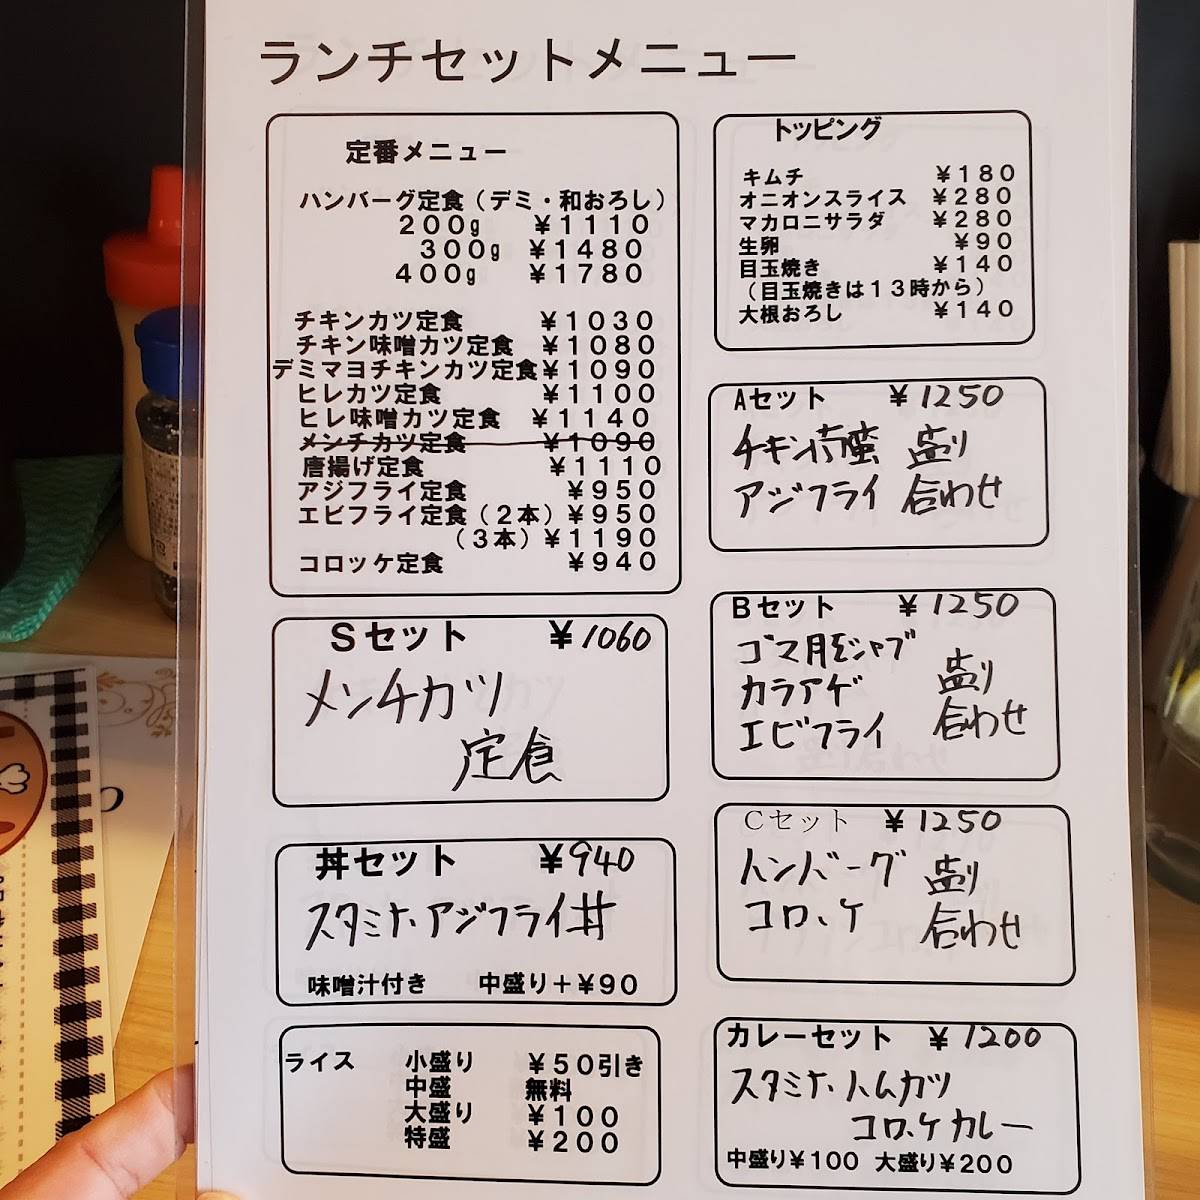 ランチセットメニュー
定番メニュー
ハンバーグ定食（デミ・和おろし）
200g ￥1110
300g ￥1480
400g ￥1780
チキンカツ定食 ￥1030
チキン味噌カツ定食 ￥1080
デミマヨチキンカツ定食￥1090
ヒレカツ定食 ￥1100
ヒレ味噌カツ定食 ￥1140
メンチカツ定食 ￥1090
唐揚げ定食 ￥1110
アジフライ定食 ￥950
エビフライ定食（2本）￥950
（3本）￥1190
コロッケ定食 ￥940
Sセット ￥1060
メンチカツ
定食
丼セット ￥940
スタミナ、アジフライ丼
味噌汁付き 中盛り＋￥90
ライス 小盛り ￥50引き
中盛 無料
大盛り ￥100
特盛 ￥200
トッピング
キムチ ￥180
オニオンスライス ￥280
マカロニサラダ ￥280
生卵 ￥90
目玉焼き ￥140
（目玉焼きは13時から）
大根おろし ￥140
Aセット ￥1250
チキン南蛮 盛り
アジフライ 合わせ
Bセット ￥1250
ゴマ豚シャブ
カラアゲ 盛り
エビフライ 合わせ
Cセット ￥1250
ハンバーグ 盛り
コロッケ 合わせ
カレーセット ￥1200
スタミナ、ハムカツ
コロッケカレー
中盛り￥100 大盛り￥200